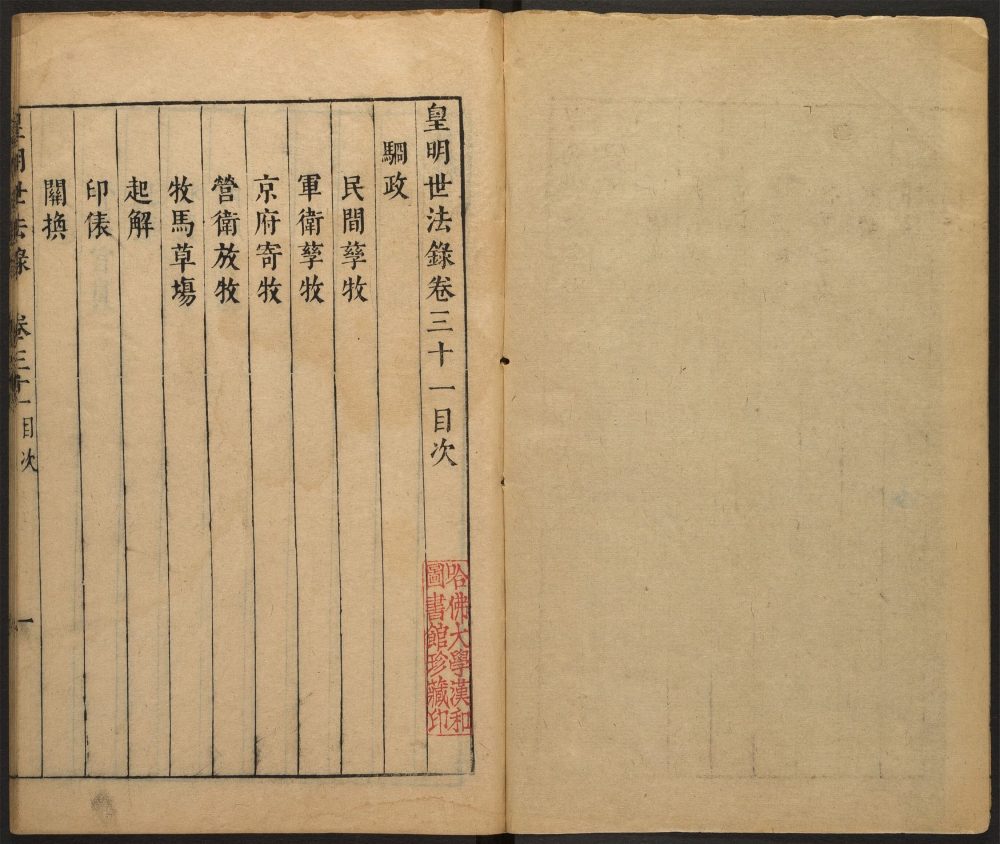 皇明世法錄卷三十一目次
駉政
民間孳牧
軍衛孳牧
京府寄牧
營衛放牧
牧馬草場
起解
印俵
關換
皇明世法錄 卷三十一目次 一
哈佛大學漢和
圖書館珍藏印